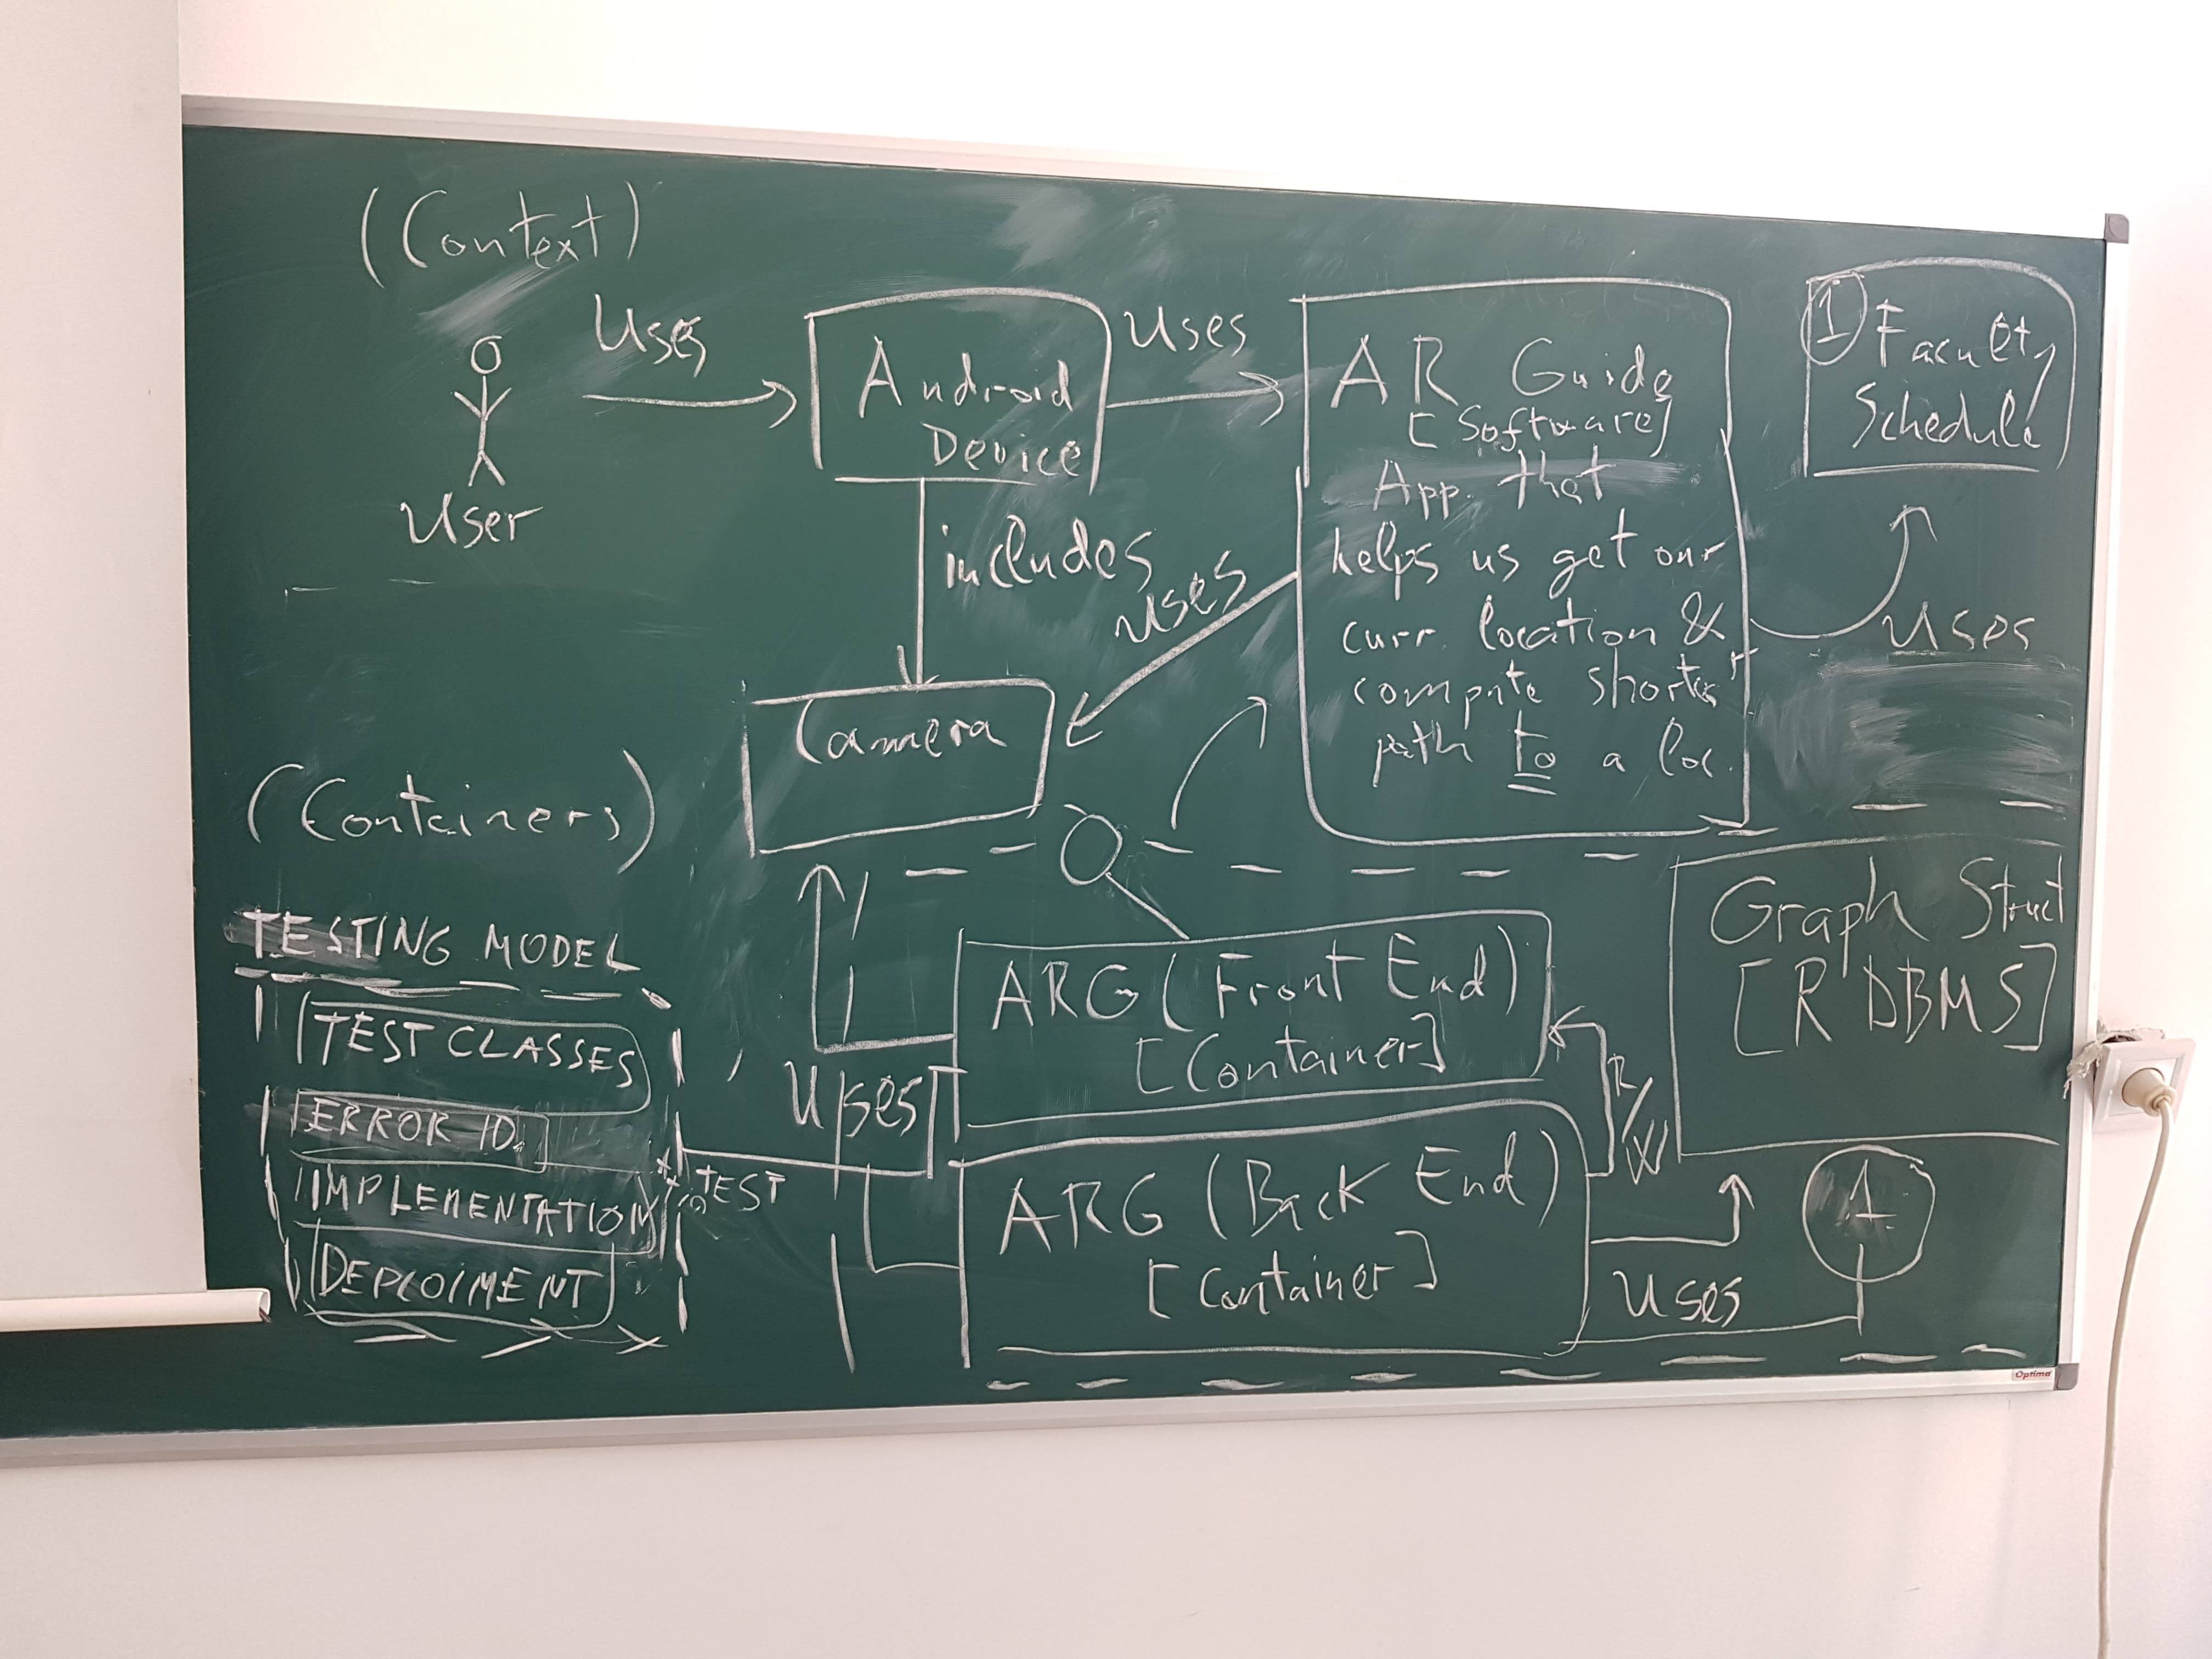 (Context)
User
Uses
Android
Device
includes
Uses
AR Guide
[Software]
App. that
helps us get our
curr. location &
compute shortest
path to a loc.
1 Faculty
Schedule
uses
uses
Camera
(Containers)
TESTING MODEL
TEST CLASSES
ERROR ID.
IMPLEMENTATION
DEPLOIMENT
TEST
Uses
ARG (Front End)
[Container]
ARG (Back End)
[Container]
R/W
Graph Struct
[RDBMS]
Uses
1
Optima